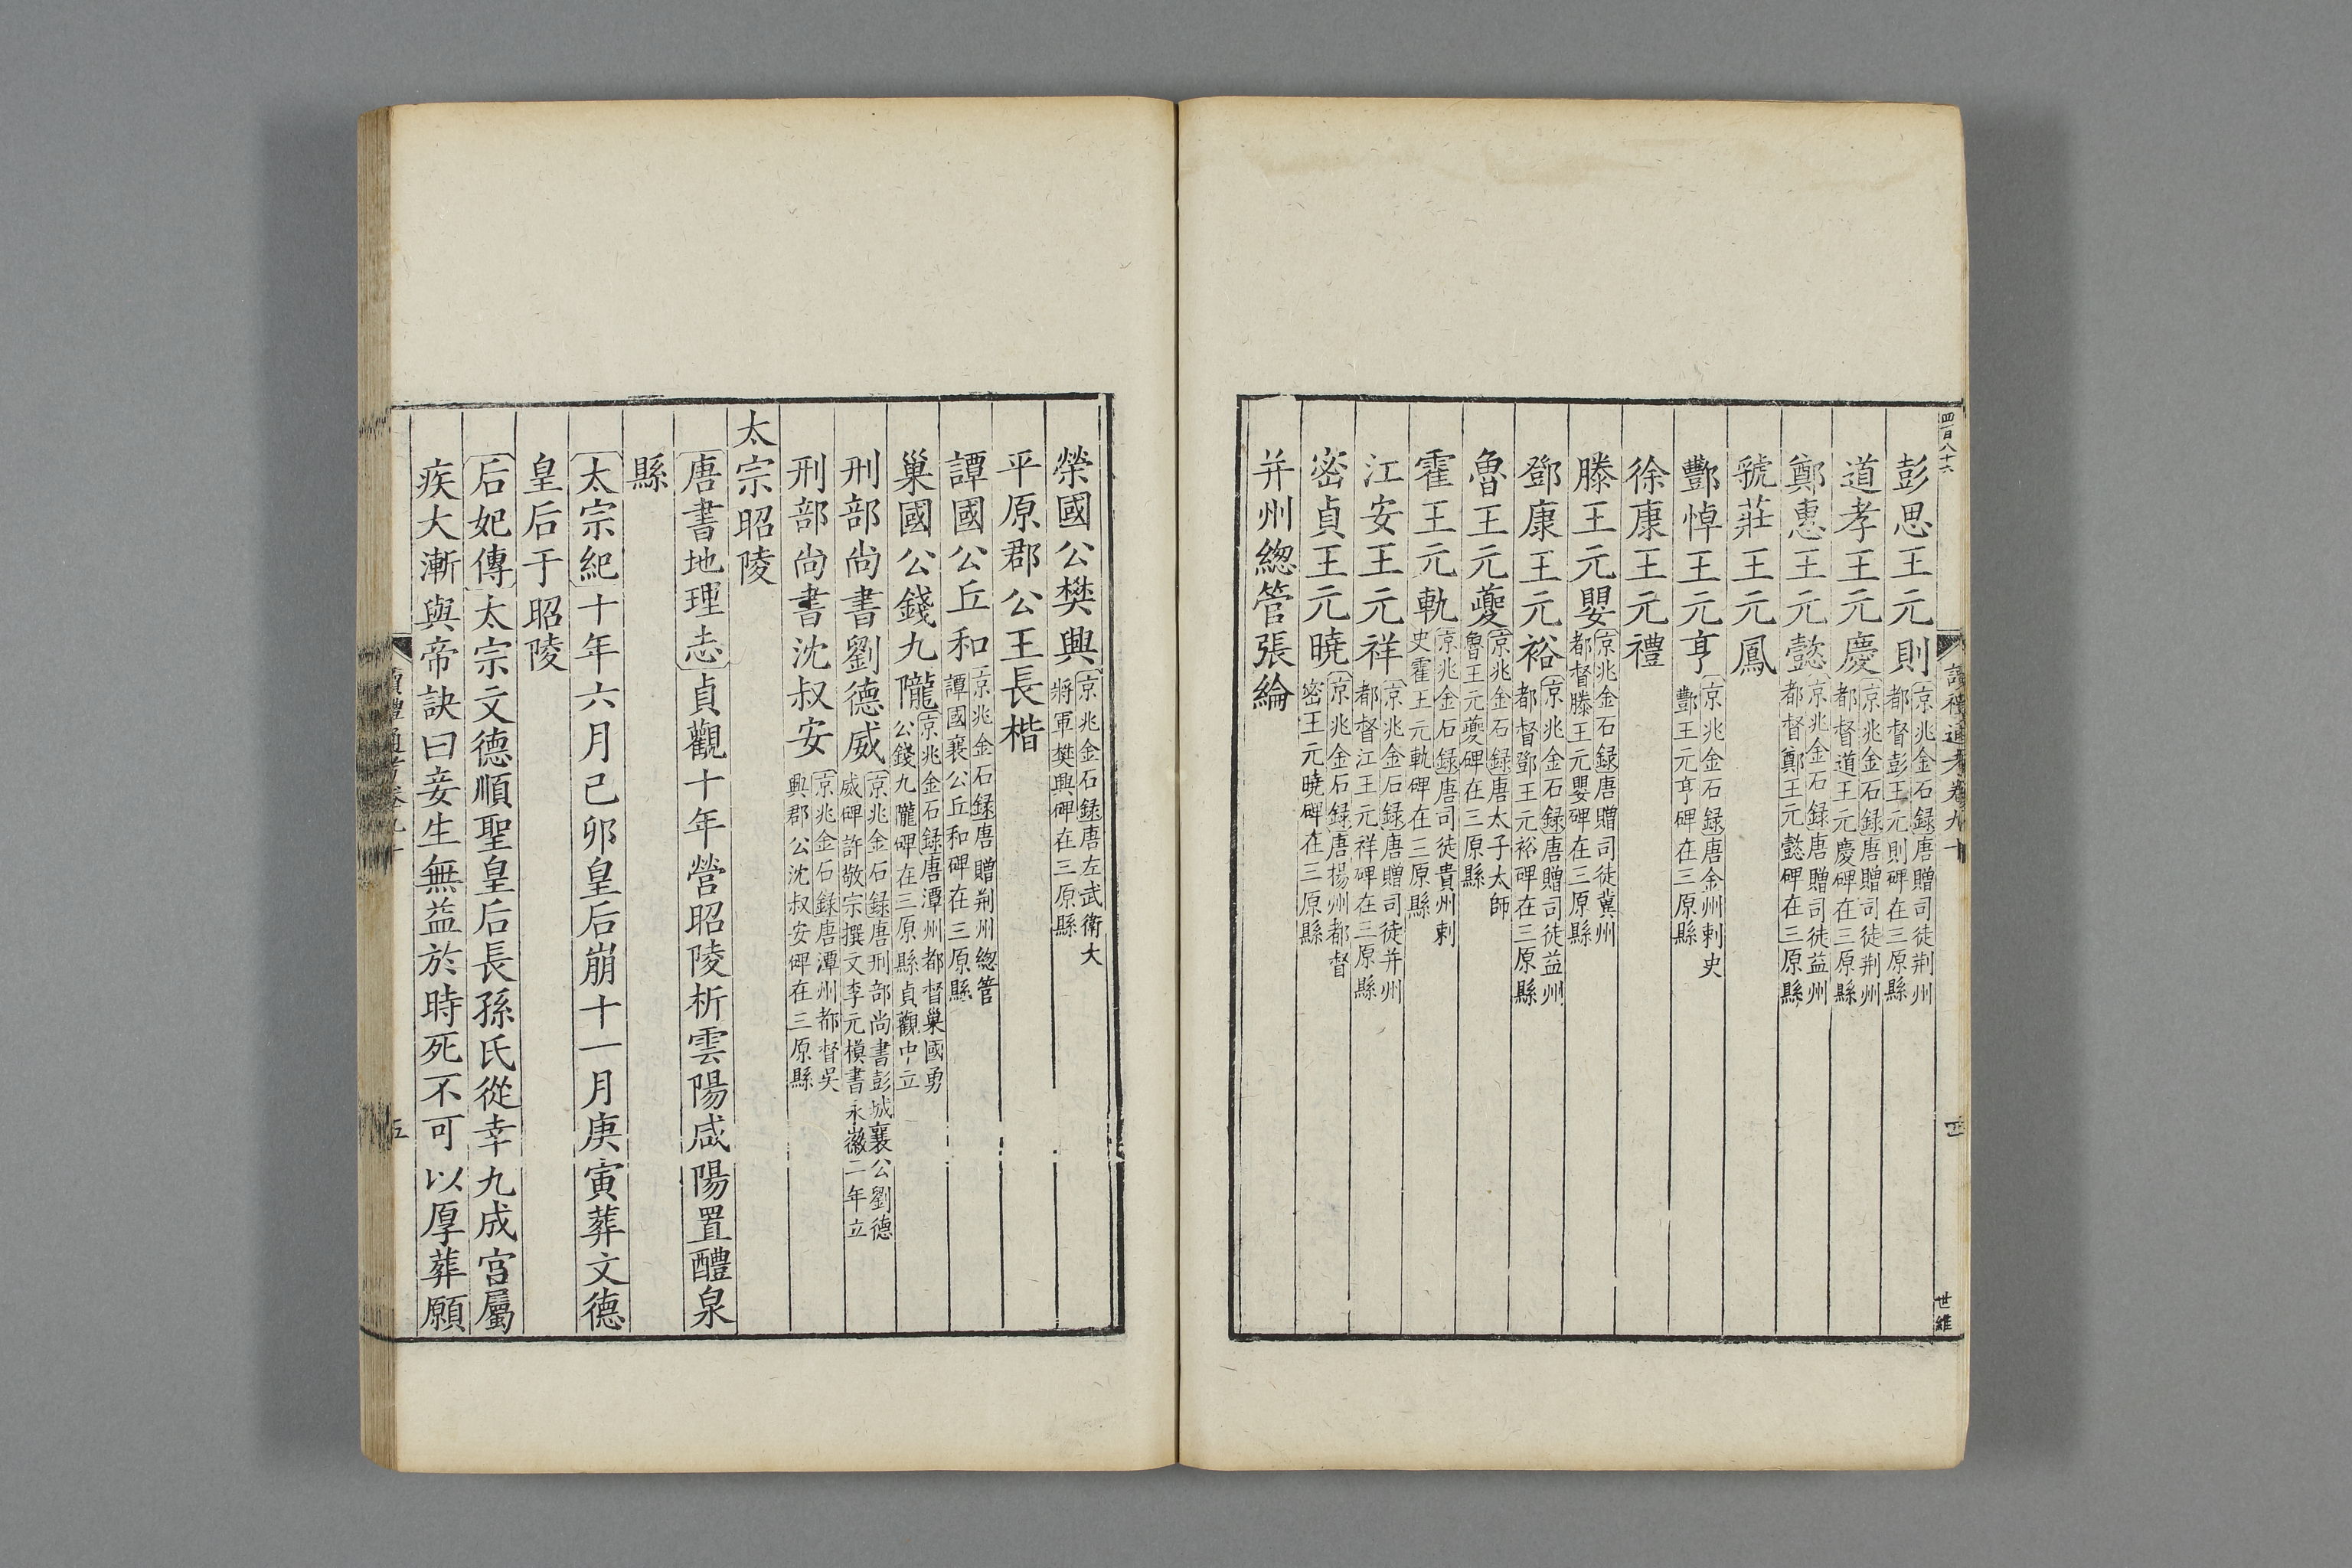 四百八十六
讀禮通考卷九十
世維
彭思王元則京兆金石録唐贈司徒荆州都督彭王元則碑在三原縣
道孝王元慶京兆金石録唐贈司徒荆州都督道王元慶碑在三原縣
鄭惠王元懿京兆金石録唐贈司徒益州都督鄭王元懿碑在三原縣
虢莊王元鳳
酆悼王元亨京兆金石録唐金州刺史酆王元亨碑在三原縣
徐康王元禮
滕王元嬰京兆金石録唐贈司徒冀州都督滕王元嬰碑在三原縣
鄧康王元裕京兆金石録唐贈司徒益州都督鄧王元裕碑在三原縣
魯王元夔京兆金石録唐太子太師魯王元夔碑在三原縣
霍王元軌京兆金石録唐司徒貴州刺史霍王元軌碑在三原縣
江安王元祥京兆金石録唐贈司徒并州都督江王元祥碑在三原縣
密貞王元曉京兆金石録唐揚州都督密王元曉碑在三原縣
并州總管張綸
榮國公樊興京兆金石録唐左武衛大將軍樊興碑在三原縣
平原郡公王長楷
譚國公丘和京兆金石録唐贈荆州總管譚國襄公丘和碑在三原縣
巢國公錢九隴京兆金石録唐潭州都督巢國勇公錢九隴碑在三原縣貞觀中立
刑部尚書劉德威京兆金石録唐刑部尚書彭城襄公劉德威碑許敬宗撰文李元模書永徽二年立
刑部尚書沈叔安京兆金石録唐潭州都督吳興郡公沈叔安碑在三原縣
太宗昭陵
唐書地理志貞觀十年營昭陵析雲陽咸陽置醴泉
縣
太宗紀十年六月己卯皇后崩十一月庚寅葬文德
皇后于昭陵
后妃傳太宗文德順聖皇后長孫氏從幸九成宫屬
疾大漸與帝訣曰妾生無益於時死不可以厚葬願
讀禮通考卷九十
五